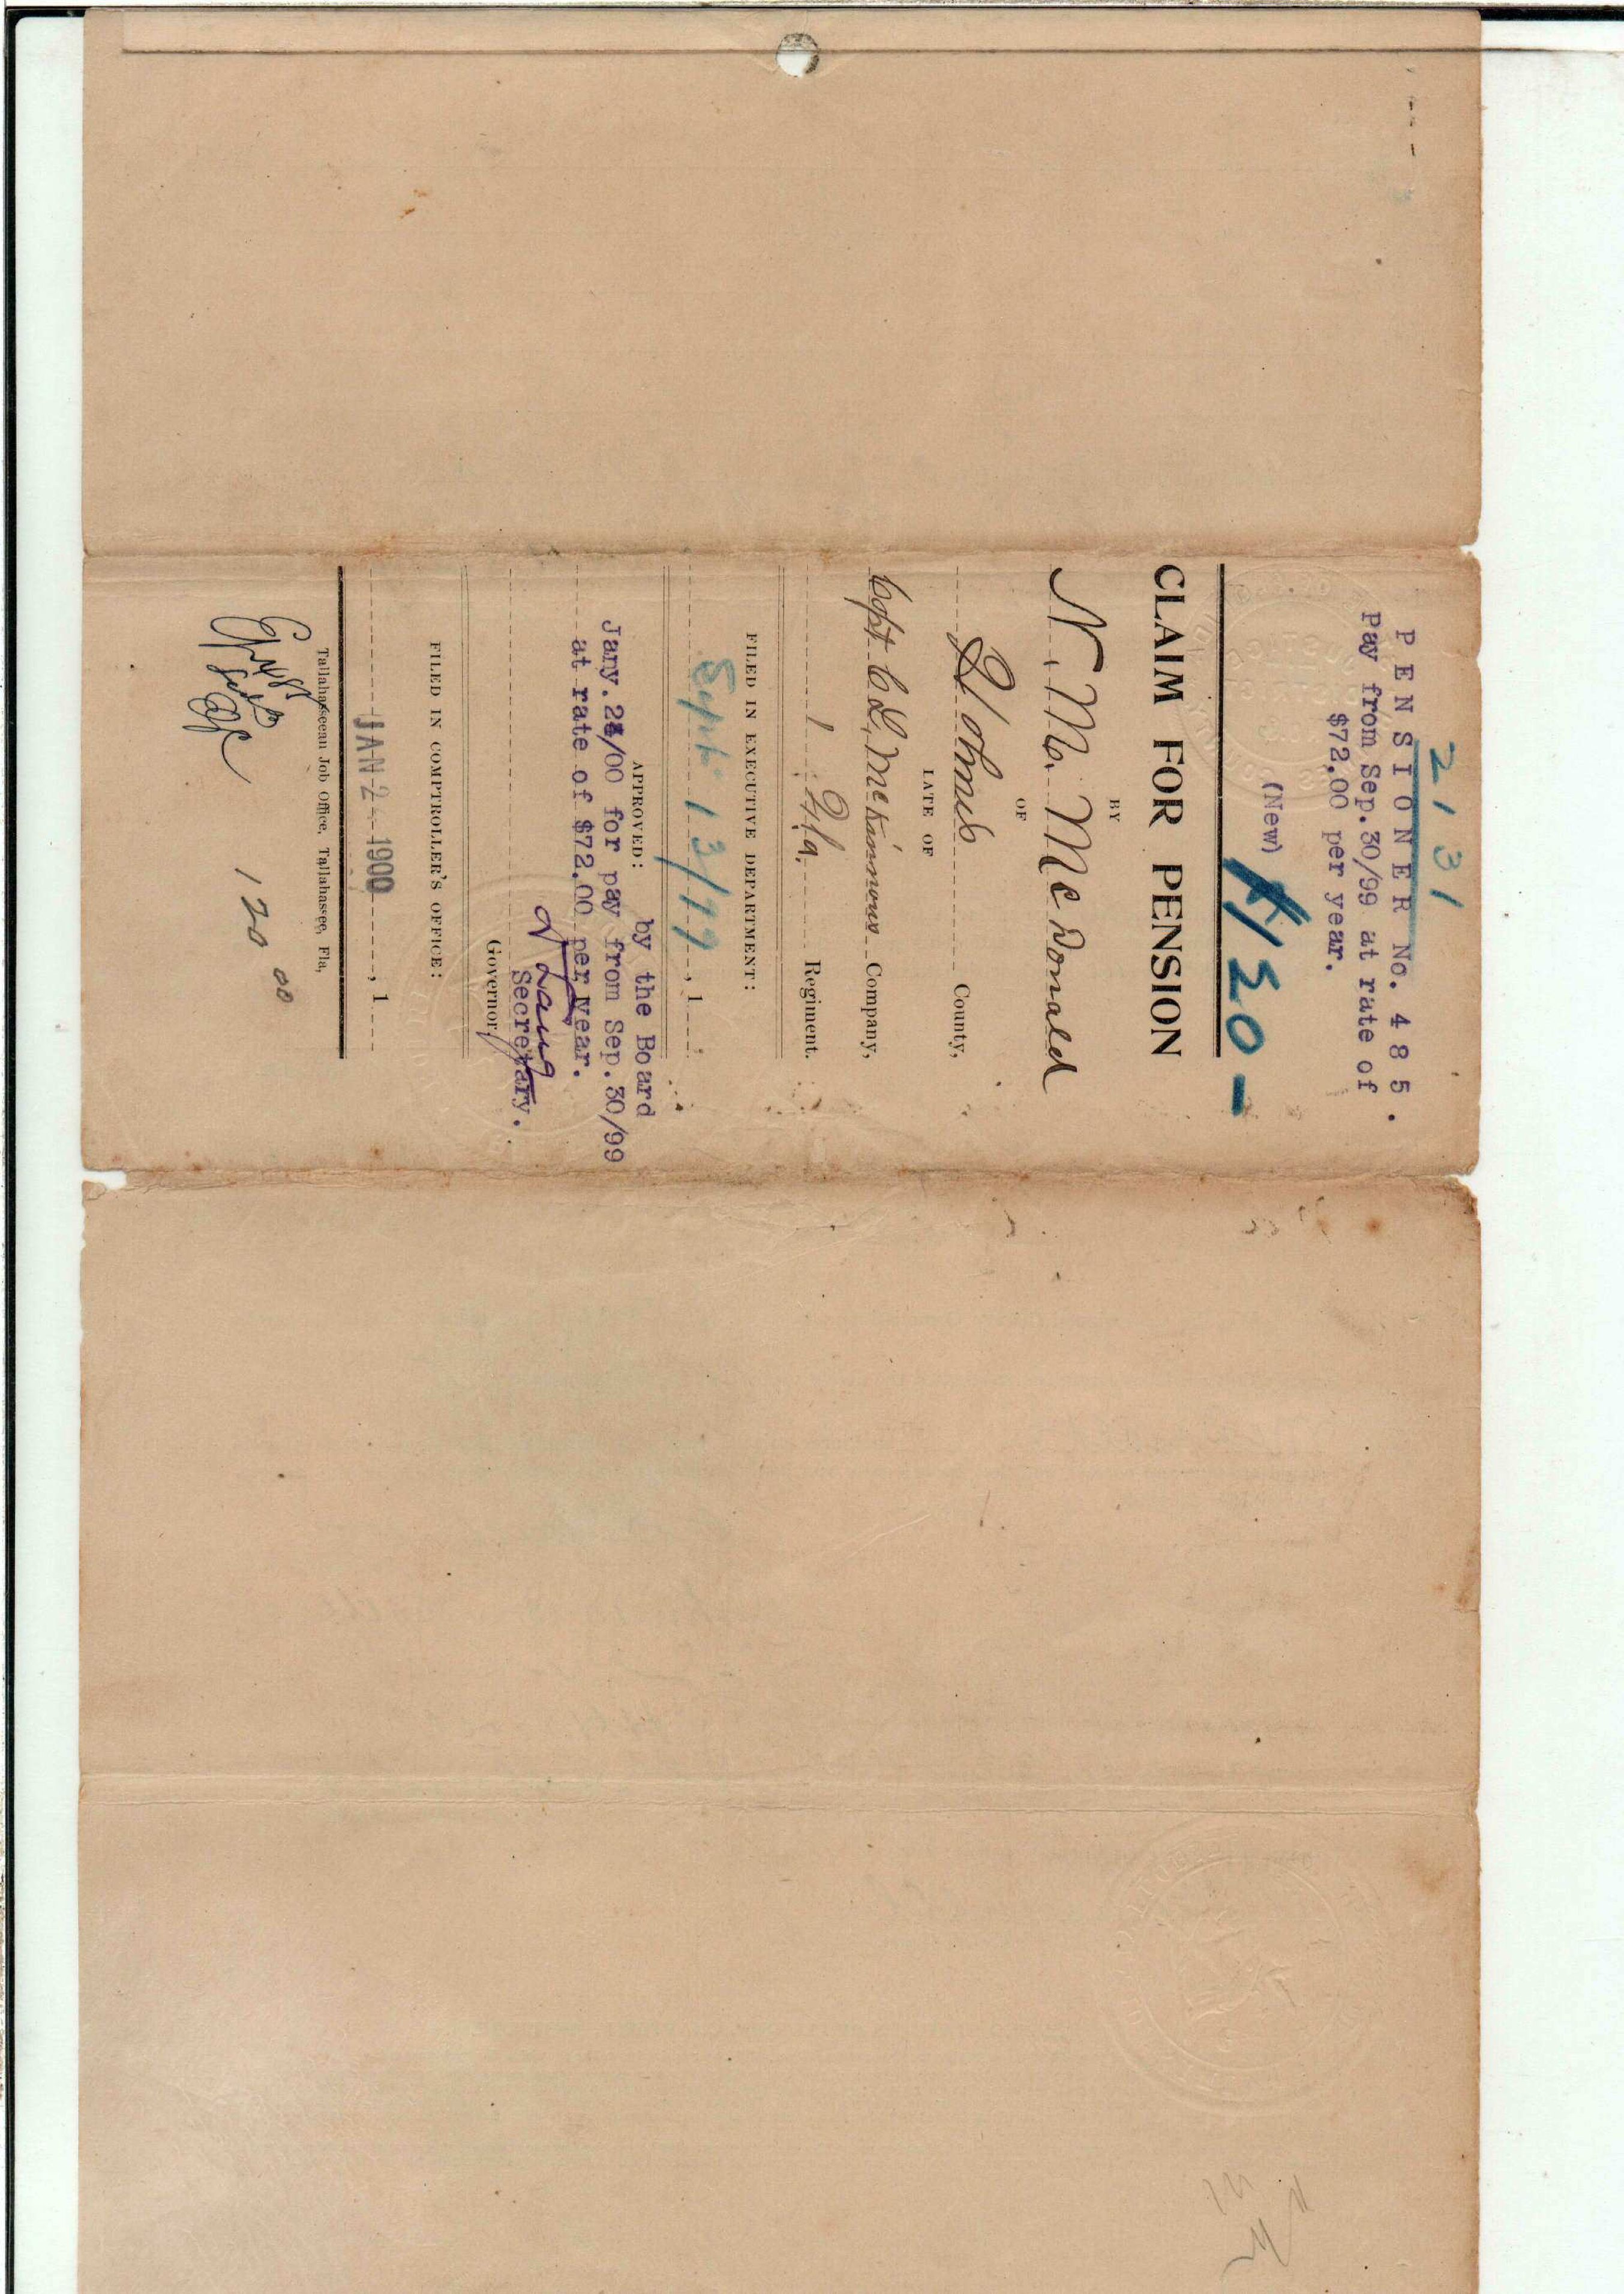 2131
PENSIONER No. 485.
Pay from Sep.30/99 at rate of
$72.00 per year.
(New)
120-
CLAIM FOR PENSION
BY
N. M. McDonald
OF
Holmes County,
LATE OF
Capt C. L. McKinnons Company,
1 Fla. Regiment.
FILED IN EXECUTIVE DEPARTMENT:
Sept. 13/99, 1
APPROVED: by the Board
Jany. 24/00 for pay from Sep.30/99
at rate of $72.00 per year.
Secretary.
Governor.
FILED IN COMPTROLLER'S OFFICE:
JAN 24 1900, 1
Tallahasseean Job Office, Tallahassee, Fla,
120 00